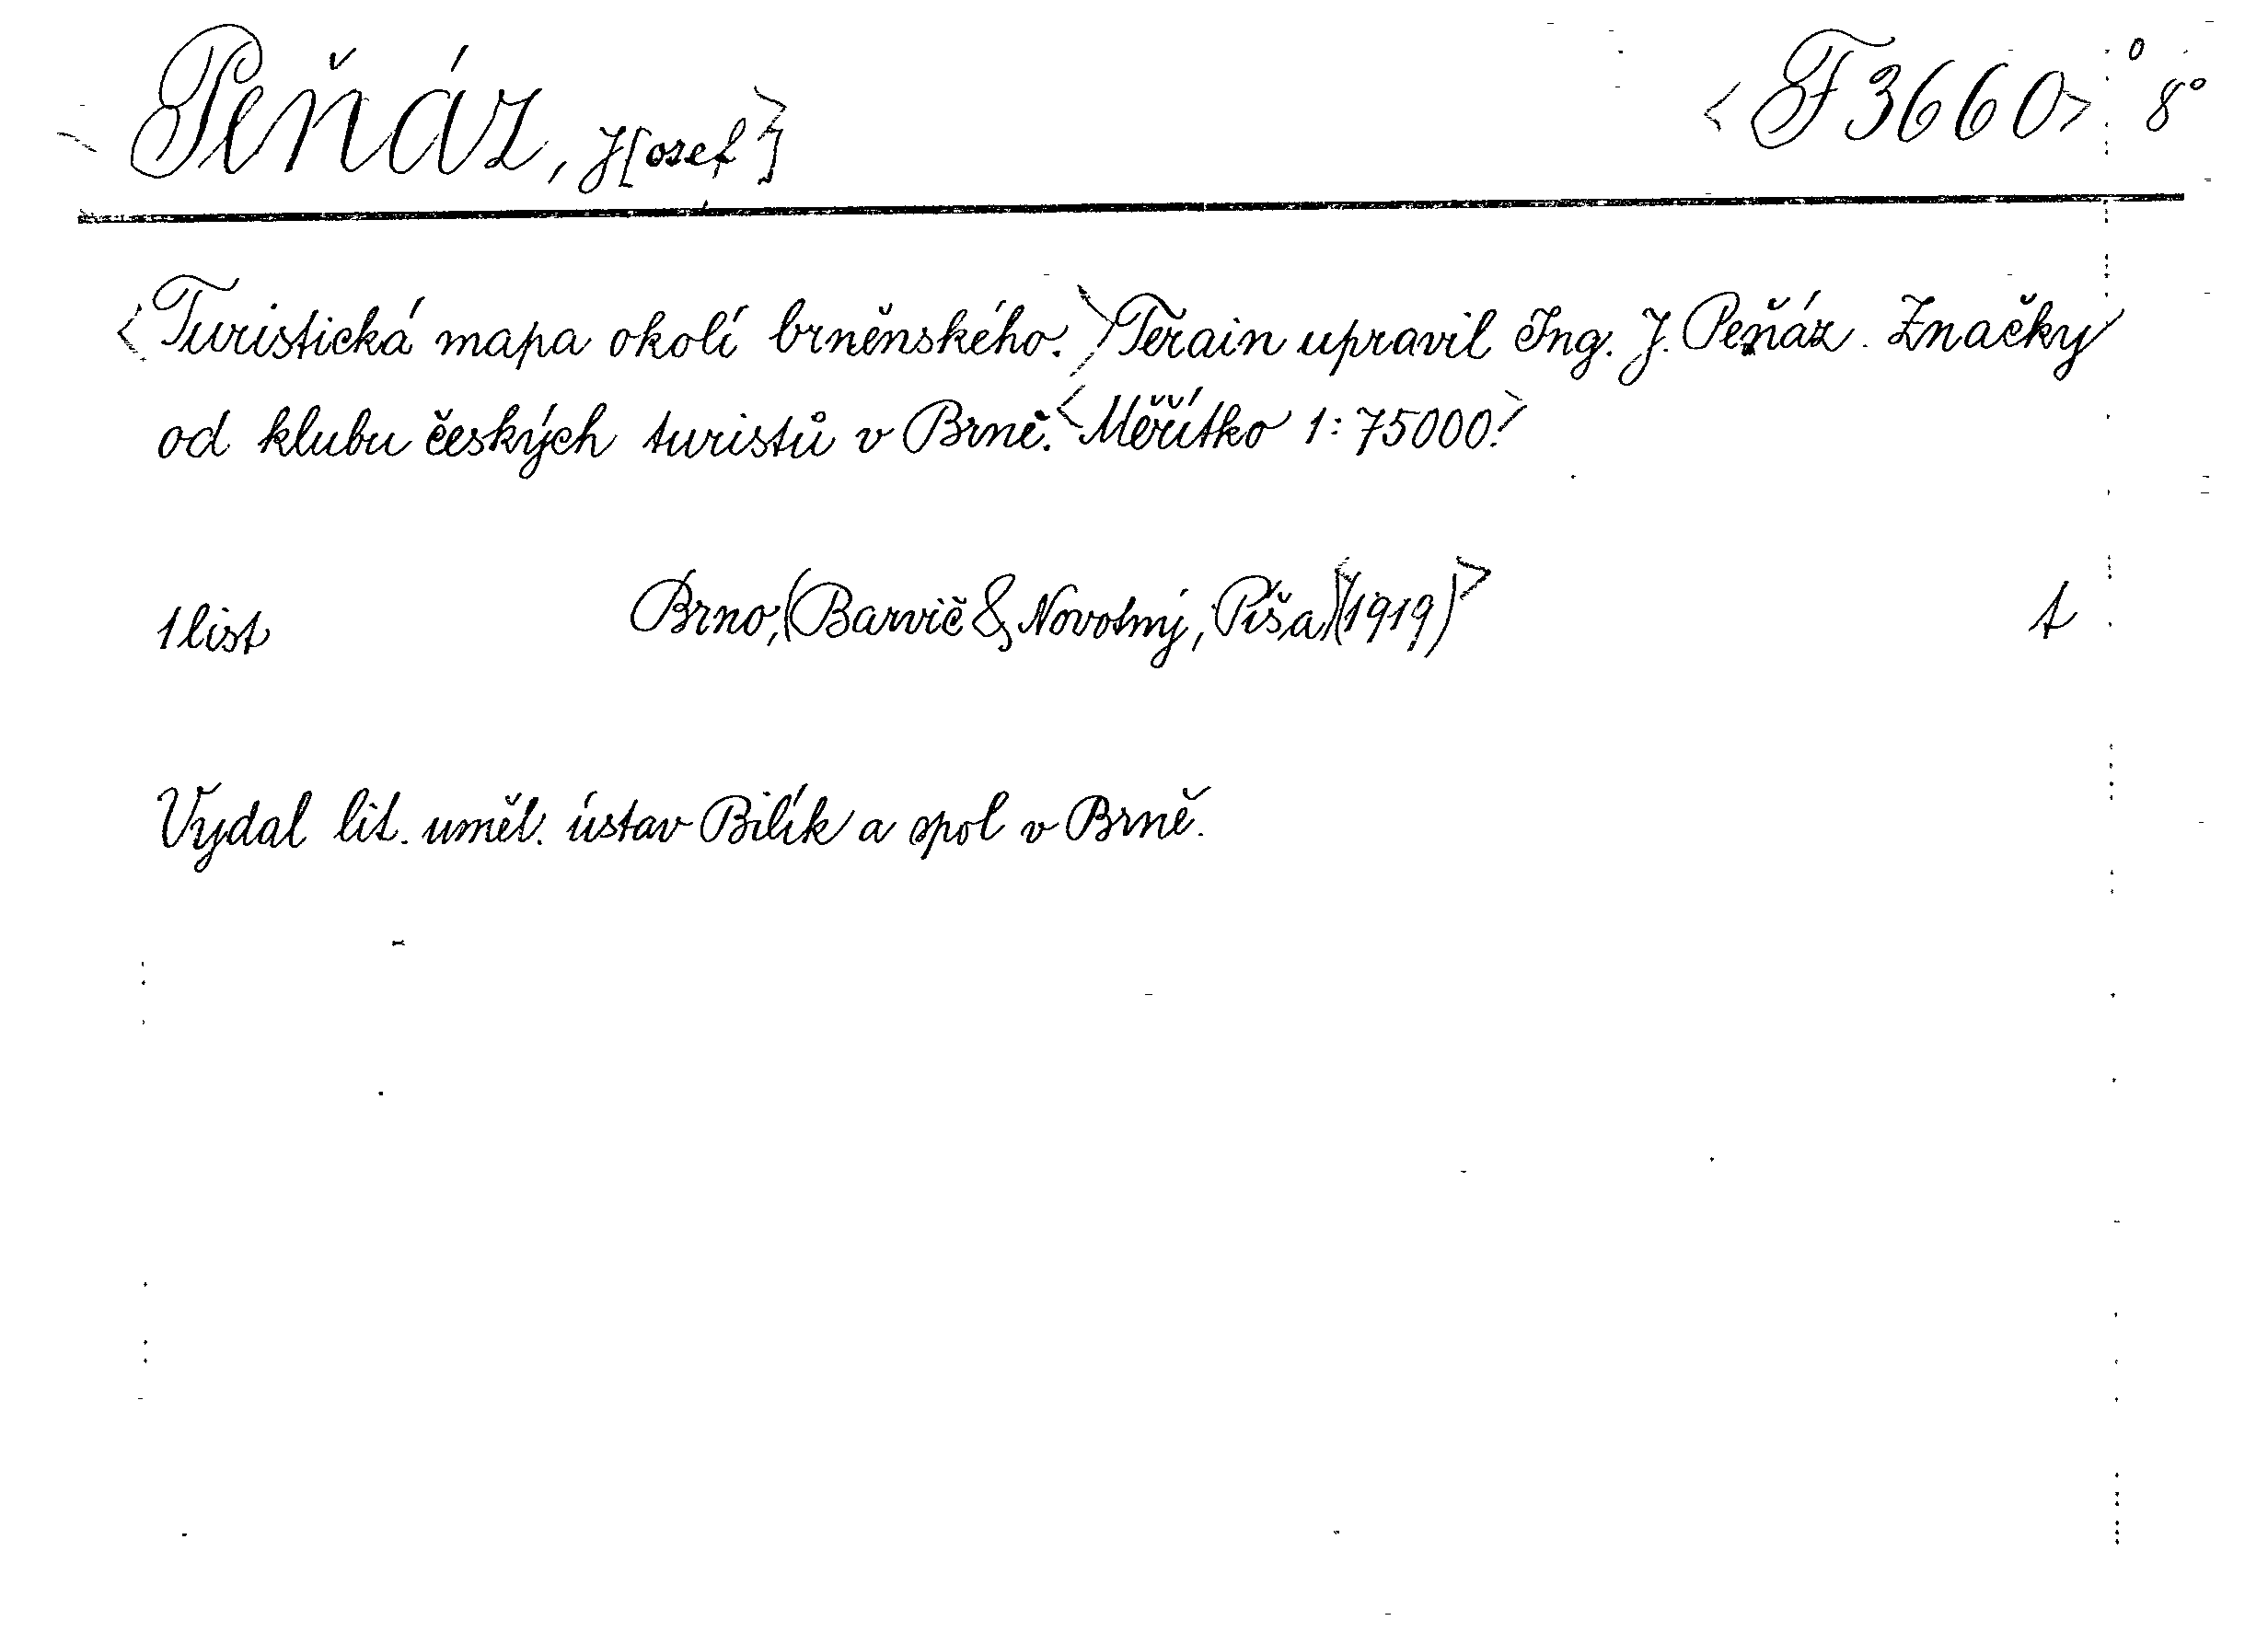 Peňáz, J[osef] <F 3660> 8°
<Turistická mapa okolí brněnského.> Terain upravil Ing. J. Peňáz. Značky
od klubu českých turistů v Brně. <Měřítko 1:75000.>
1 list Brno, (Barvič & Novotný, Píša) (1919)> t
Vydal lit. uměl. ústav Bilík a spol v Brně.